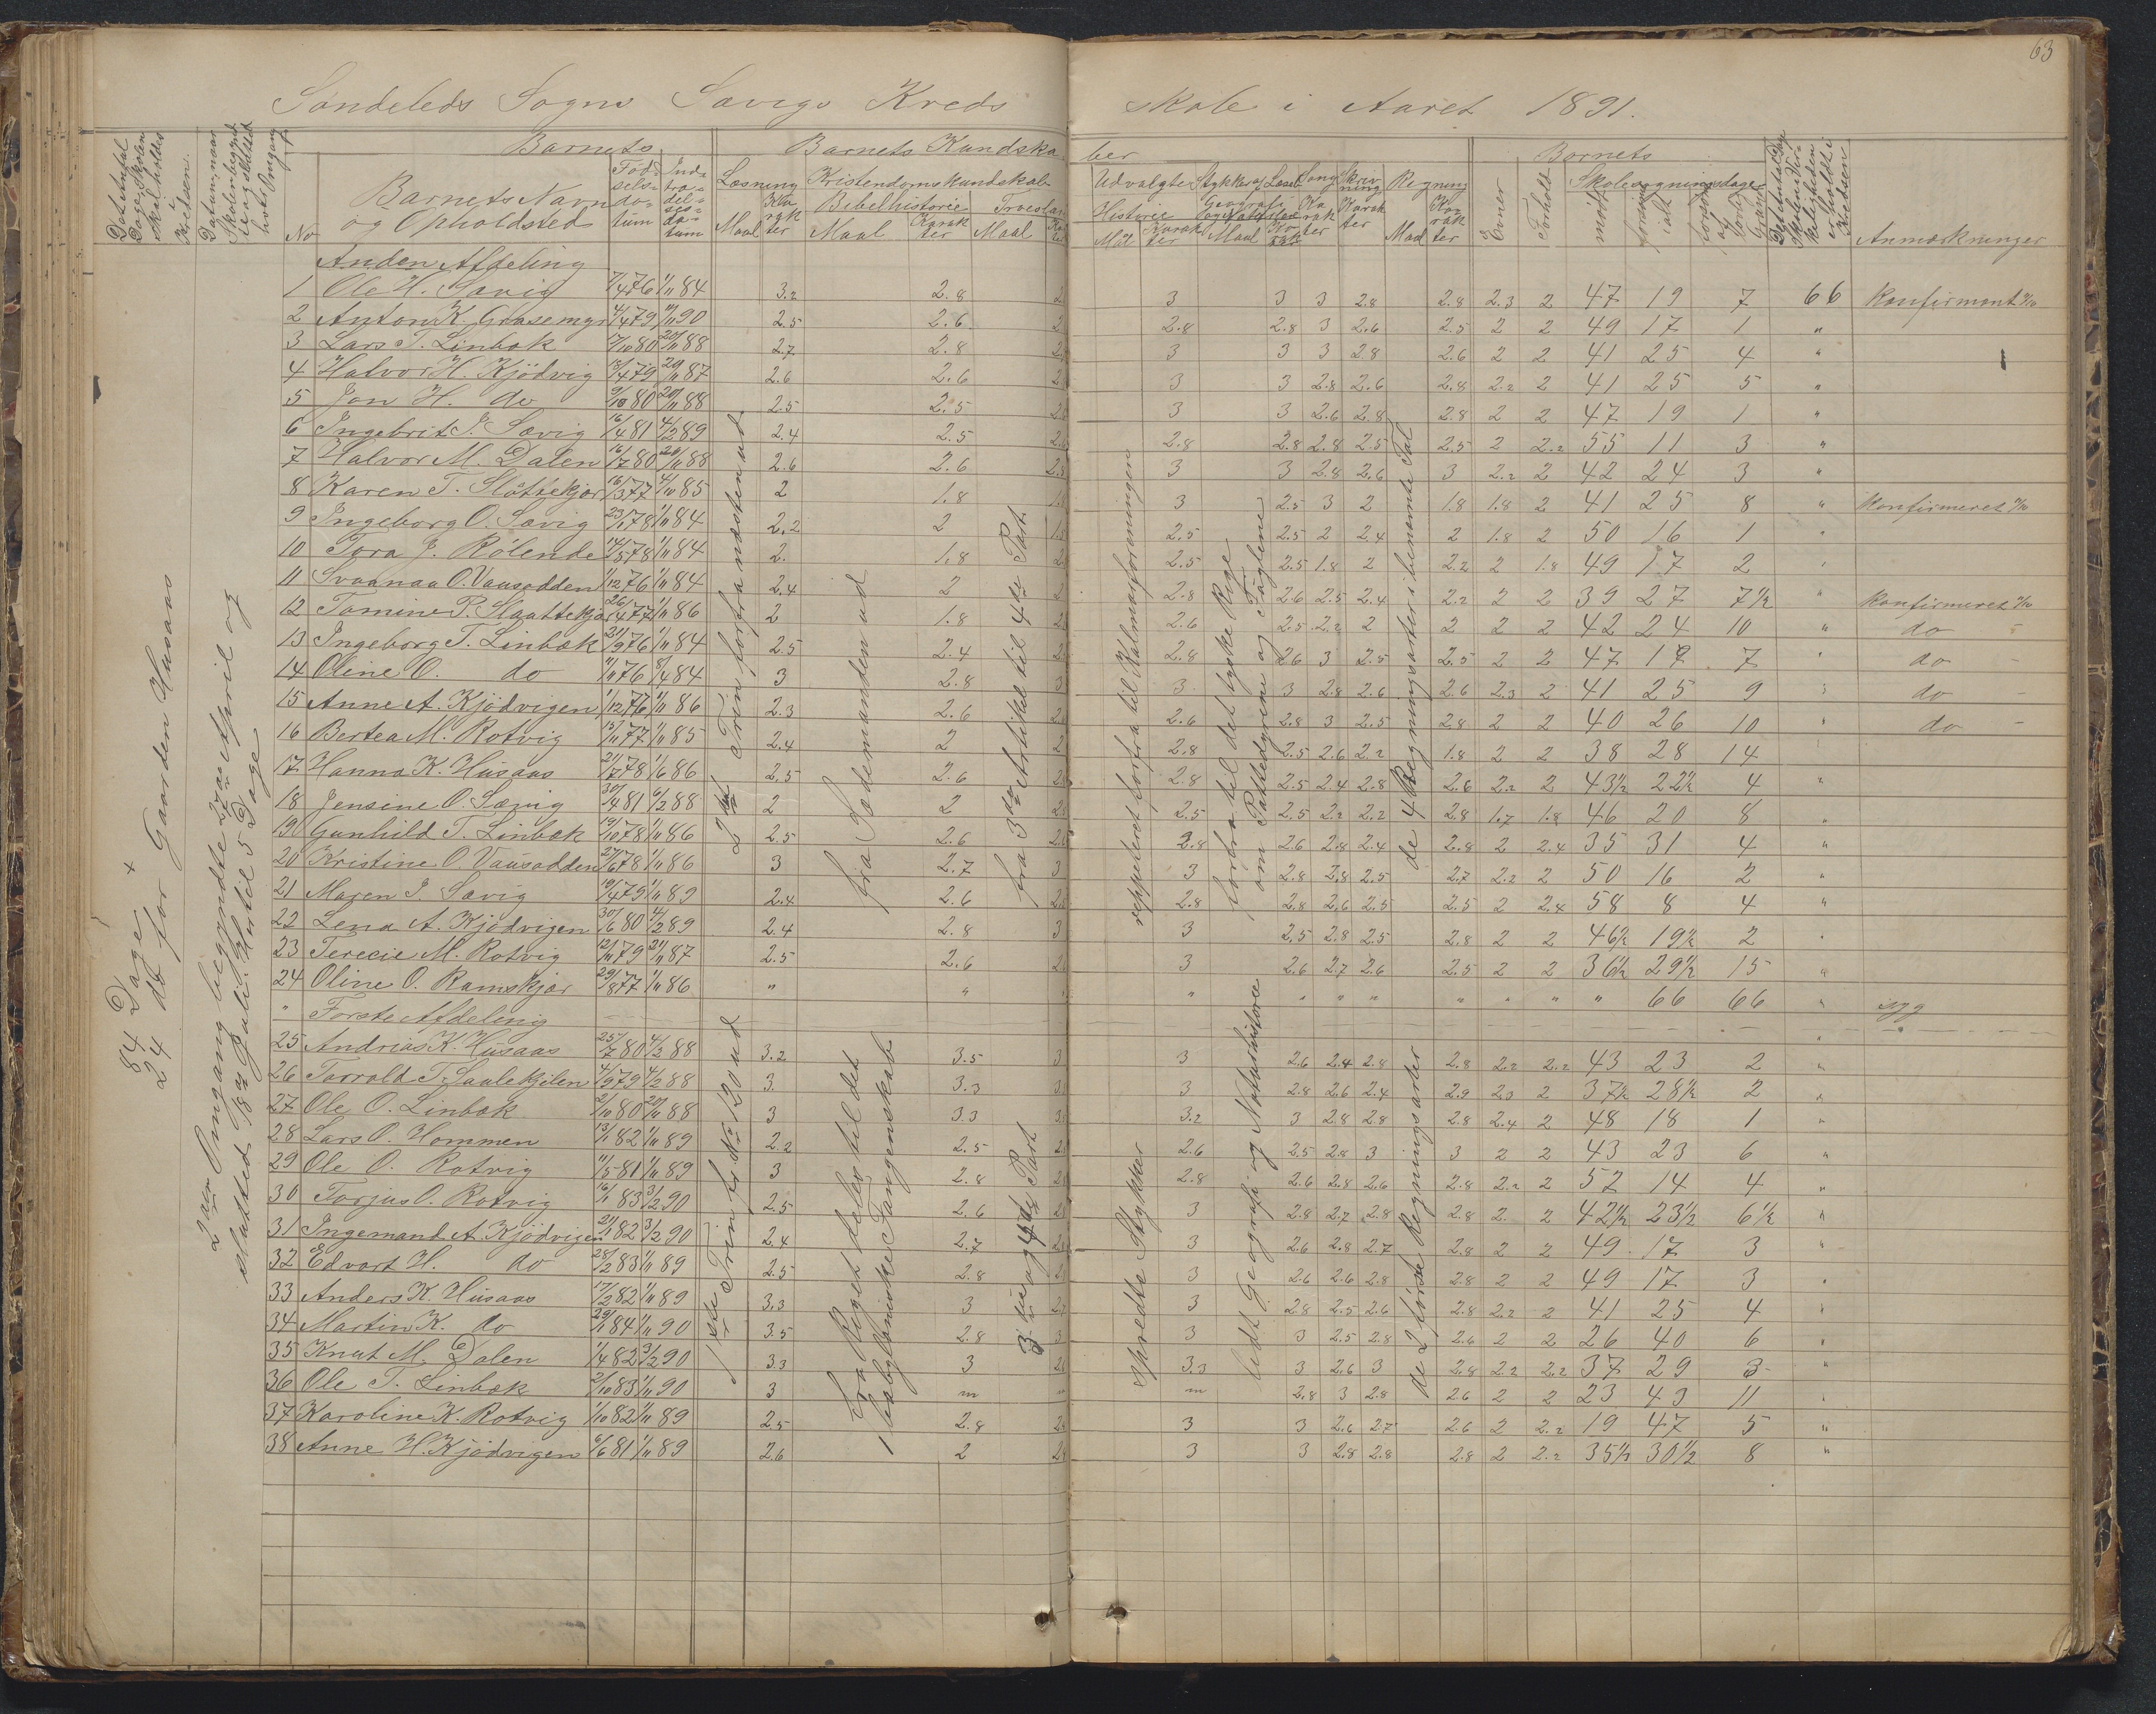 63
Søndeleds Sogns Søvigs Kreds Skole i Aaret 1891.
Det Antal Dage, Skolen skal holdes i Kredsen.
Datum, naar Skolen begynd. og sluttet hver Omgang
No
Barnets
Barnets Navn og Opholdsted
Fødselsdatum
Indtrædelsesdatum
Barnets Kundskaber
Læsning
Maal
Karakter
Kristendomskundskab
Bibelhistorie
Maal
Karakter
Troeslære
Maal
Udvalgte Stykker af Læseb.
Historie
Mål
Karakter
Geografi og Naturhist
Maal
Sang
Karakter
Skrivning
Karakter
Regning
Maal
Karakter
Evner
Forhold
Barnets
Skolesøgningsdage
mødt
forsømt ialt
forsømt af lovlig Grund
Det Antal Dage Skolen i Virkeligheden er holdt i Kredsen
Anmærkninger
84 Dage +
24 do for Gaarden Husaas
2den Omgang begyndte 27de April og
slutted 18de Juli. Hertil 5 Dage
Anden Afdeling
1 Ole H. Søvig 7/4 76 1/11 84 3.2 2.8 3 3 3 2.8 2.8 2.3 2 47 19 7 66 Konfirmeret
2 Anton K. Grasemyr 4/4 79 11/11 90 2.5 2.6 2.8 2.8 3 2.6 2.5 2 2 49 17 1 "
3 Lars T. Linbæk 17/10 80 20/11 88 2.7 2.8 3 3 3 2.8 2.6 2 2 41 25 4 "
4 Halvor H. Kjødvig 13/4 79 20/11 87 2.6 2.6 3 3 2.8 2.6 2.8 2.2 2 41 25 5 "
5 Jon H. do 9/10 80 20/11 88 2.5 2.5 3 3 2.6 2.8 2.8 2 2 47 19 1 "
6 Ingebrit J. Søvig 16/4 81 4/2 89 2.4 2.5 2.8 2.8 2.8 2.5 2.5 2 2.2 55 11 3 "
7 Halvor M. Dalen 16/7 80 20/11 88 2.6 2.6 3 3 2.8 2.6 3 2.2 2 42 24 3 "
8 Karen T. Slåttekjær 16/3 77 4/10 85 2 1.8 3 2.5 3 2 1.8 1.8 2 41 25 8 " Konfirmeret
9 Ingeborg O. Søvig 23/1 78 1/11 84 2.2 2 2.5 2.5 2 2.4 2 1.8 2 50 16 1 "
10 Tora J. Rølende 14/5 78 1/11 84 2. 1.8 2.5 2.5 1.8 2 2.2 2 1.8 49 17 2 "
11 Svanaa O. Vausodden 1/12 76 1/11 84 2.4 2 2.8 2.6 2.5 2.4 2.2 2 2 39 27 7½ " Konfirmeret
12 Tomine P. Slaattekjær 26/4 77 1/11 86 2 1.8 2.6 2.5 2.2 2 2 2 2 42 24 10 " do
13 Ingeborg T. Linbæk 21/9 76 1/11 84 2.5 2.4 2.8 2.6 3 2.5 2.5 2 2 47 19 7 " do
14 Oline O. do 11/11 76 8/4 84 3 2.8 3 3 2.8 2.6 2.6 2.3 2 41 25 9 " do
15 Anne A. Kjødvigen 1/12 76 1/11 86 2.3 2.6 2.6 2.8 3 2.5 2.8 2 2 40 26 10 " do
16 Bertea M. Rotvig 13/11 77 1/11 85 2.4 2 2.8 2.5 2.6 2.2 1.8 2 2 38 28 14
17 Hanna K. Husaas 21/7 78 1/6 86 2.5 2.6 2.8 2.5 2.4 2.8 2.6 2.2 2 43½ 22½ 4 "
18 Jensine O. Søvig 30/4 81 6/2 88 2 2 2.5 2.5 2.2 2.2 2.8 1.7 1.8 46 20 8 "
19 Gunhild T. Linbæk 19/10 78 1/11 86 2.5 2.6 2.8 2.6 2.8 2.4 2.8 2 2.4 35 31 4 "
20 Kristine O. Vausodden 27/6 78 1/11 86 3 2.7 3 2.8 2.8 2.5 2.7 2.2 2 50 16 2 "
21 Maren J. Søvig 19/4 79 1/11 89 2.4 2.6 2.8 2.8 2.6 2.5 2.5 2 2.4 58 8 4 "
22 Lena A. Kjødvigen 30/6 80 4/2 89 2.4 2.8 3 2.5 2.8 2.5 2.8 2 2 46½ 19½ 2 "
23 Terecie M. Rotvig 12/11 79 21/11 87 2.5 2.6 3 2.6 2.7 2.6 2.5 2 2 36½ 29½ 15 "
24 Oline O. Ramskjær 29/8 77 1/11 86 " " " " " " " " " " 66 66 " syg
Første Afdeling
25 Andrias K. Husaas 25/7 80 4/2 88 3.2 3.5 3 2.6 2.4 2.8 2.8 2.2 2.2 43 23 2 "
26 Torrald T. Saulekjilen 4/9 79 4/2 88 3. 3.3 3 2.8 2.6 2.4 2.9 2.3 2 37½ 28½ 2 "
27 Ole O. Linbæk 2/10 80 20/11 88 3 3.3 3.2 3 2.8 2.8 2.8 2.4 2 48 18 1 "
28 Lars O. Hommen 13/1 82 1/11 89 2.2 2.5 2.6 2.5 2.8 3 3 2 2 43 23 6 "
29 Ole O. Rotvig 11/5 81 1/11 89 3 2.8 2.8 2.6 2.8 2.6 2.8 2.2 2 52 14 4 "
30 Torjus O. Rotvig 16/1 83 3/2 90 2.5 2.6 3 2.8 2.7 2.8 2.8 2. 2 42½ 23½ 6½ "
31 Ingemand A. Kjødvigen 21/1 82 3/2 90 2.4 2.7 3 2.6 2.8 2.7 2.8 2 2 49 17 3 "
32 Edvart H. do 28/2 83 1/11 89 2.5 2.8 3 2.6 2.6 2.8 2.8 2 2 49 17 3 "
33 Anders K. Husaas 17/2 82 1/11 89 3.3 3 3 2.8 2.5 2.6 2.8 2.2 2 41 25 4 "
34 Martin K. do 29/1 84 1/11 90 3.5 2.8 3 3 2.5 2.8 2.6 2 2 26 40 6 "
35 Knut M. Dalen 1/4 82 3/2 90 3.3 3 3.3 3 2.6 3 2.8 2.2 2.2 37 29 3 "
36 Ole T. Linbæk 2/10 83 1/11 90 3 m m 2.8 3 2.8 2.6 2 2 23 43 11 "
37 Karoline K. Rotvig 1/10 82 1/11 89 2.5 2.8 3 3 2.6 2.7 2.6 2 2.2 19 47 5 "
38 Anne H. Kjødvigen 6/6 81 1/11 89 2.6 2 3 3 2.8 2.8 2.8 2 2.2 35½ 30½ 8 "
2det Trin forfra næsten ud
fra Sædemanden ud
fra 3die Artikel til 4de Part.
reppeteret forfra til Kalmarforeningen
forfra til det tyske Rige
om Pattedyrene og Fuglene
de 4 Regningsarter i benævnte Tal
1ste Trin fr No 120 ud
fra Riget deles til det
babylloniske Fangenskab
3die og 4de Part
spredte Stykker
lidt Geografi og Naturhistorie
de 2 første Regningsarter